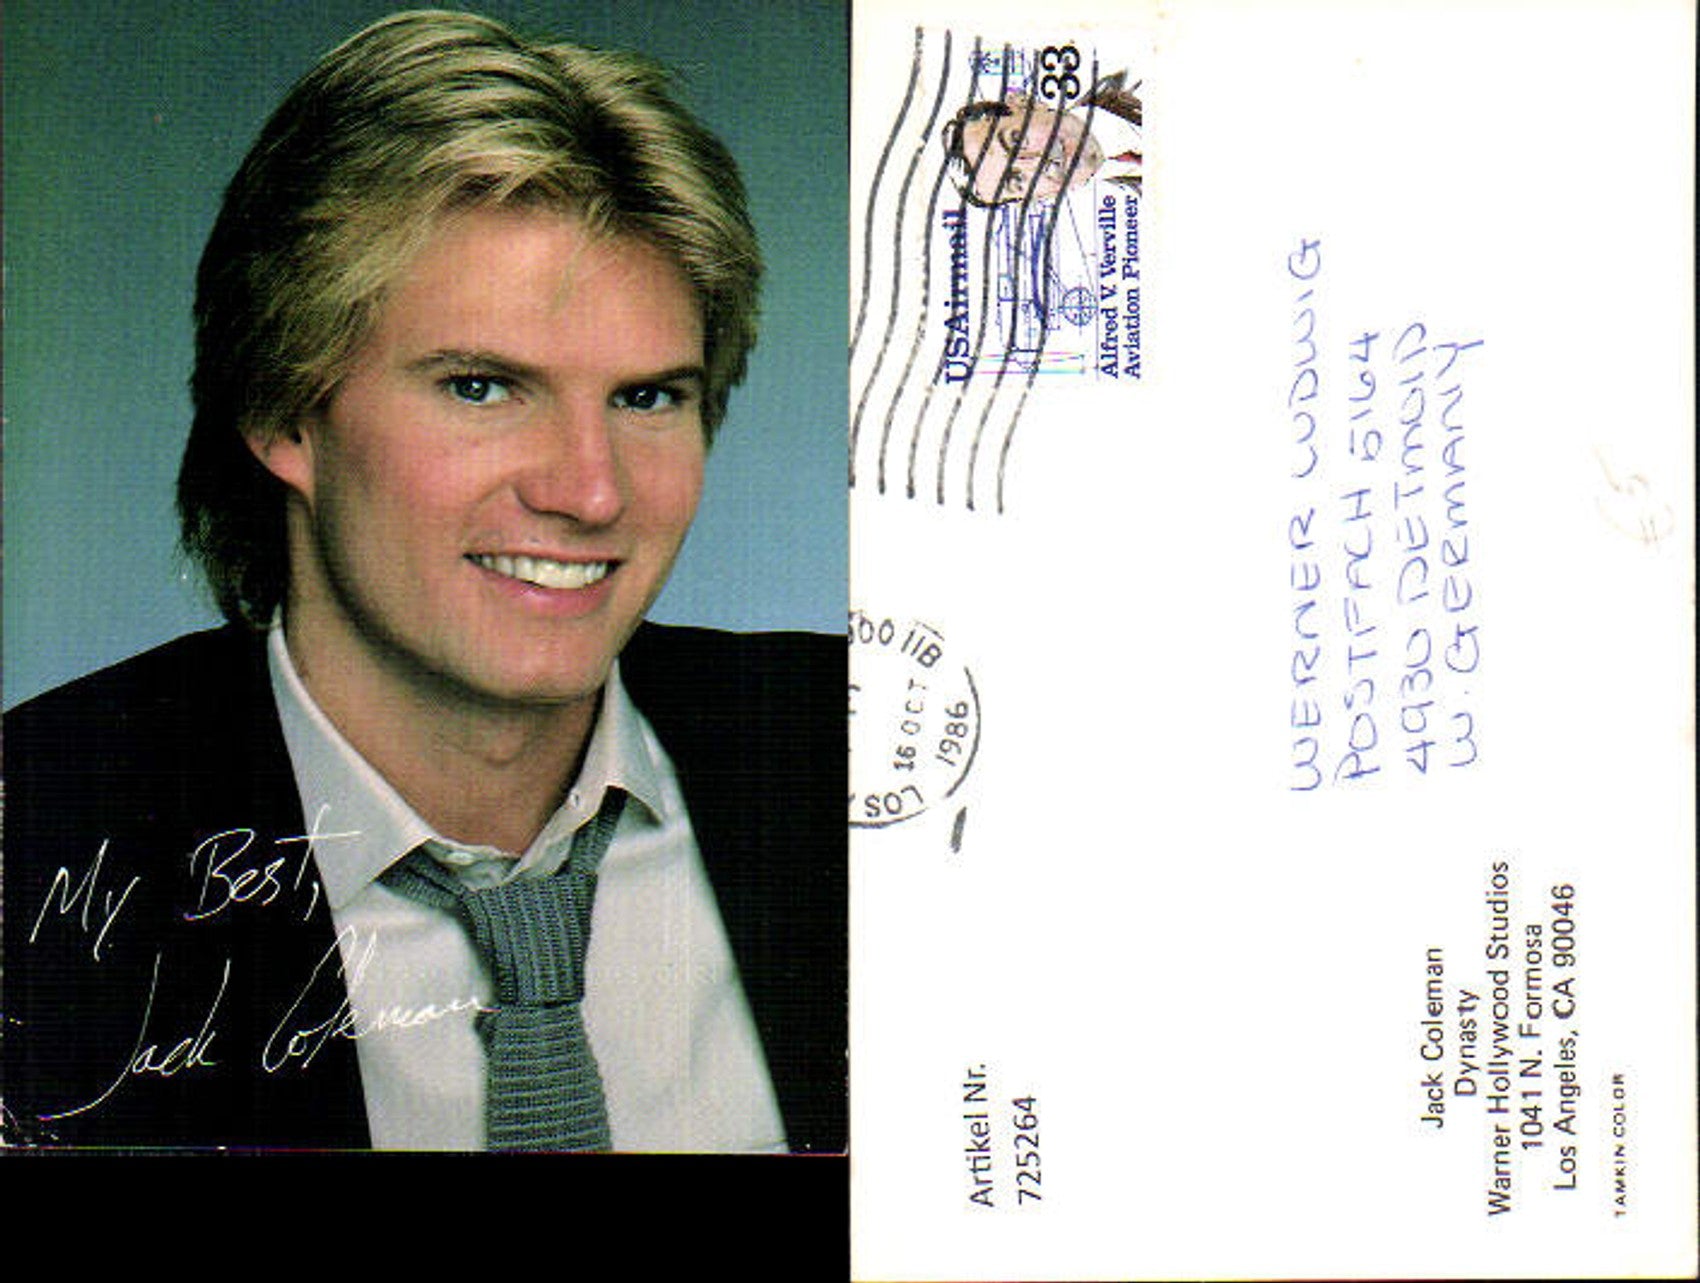 My Best,
Jack Coleman
USAirmail
33
Alfred V. Verville
Aviation Pioneer
16 OCT
1986
LOS
WERNER LUDWIG
POSTFACH 5164
4930 DETMOLD
W. GERMANY
€5
Artikel Nr.
725264
Jack Coleman
Dynasty
Warner Hollywood Studios
1041 N. Formosa
Los Angeles, CA 90046
TAMKIN COLOR